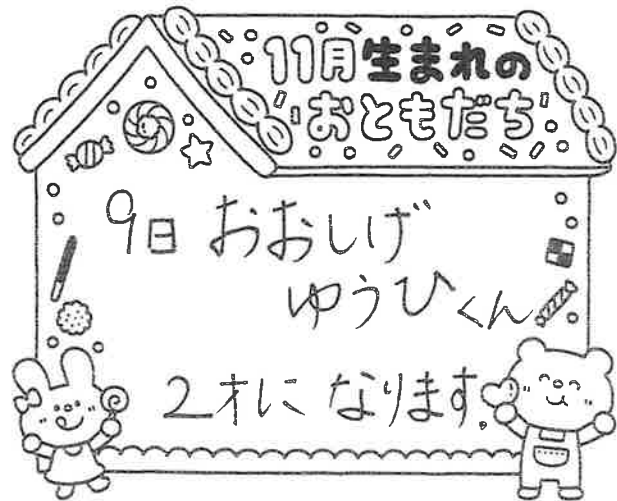 11月生まれの
おともだち
9日 おおしげ
ゆうひくん
2才に なります.